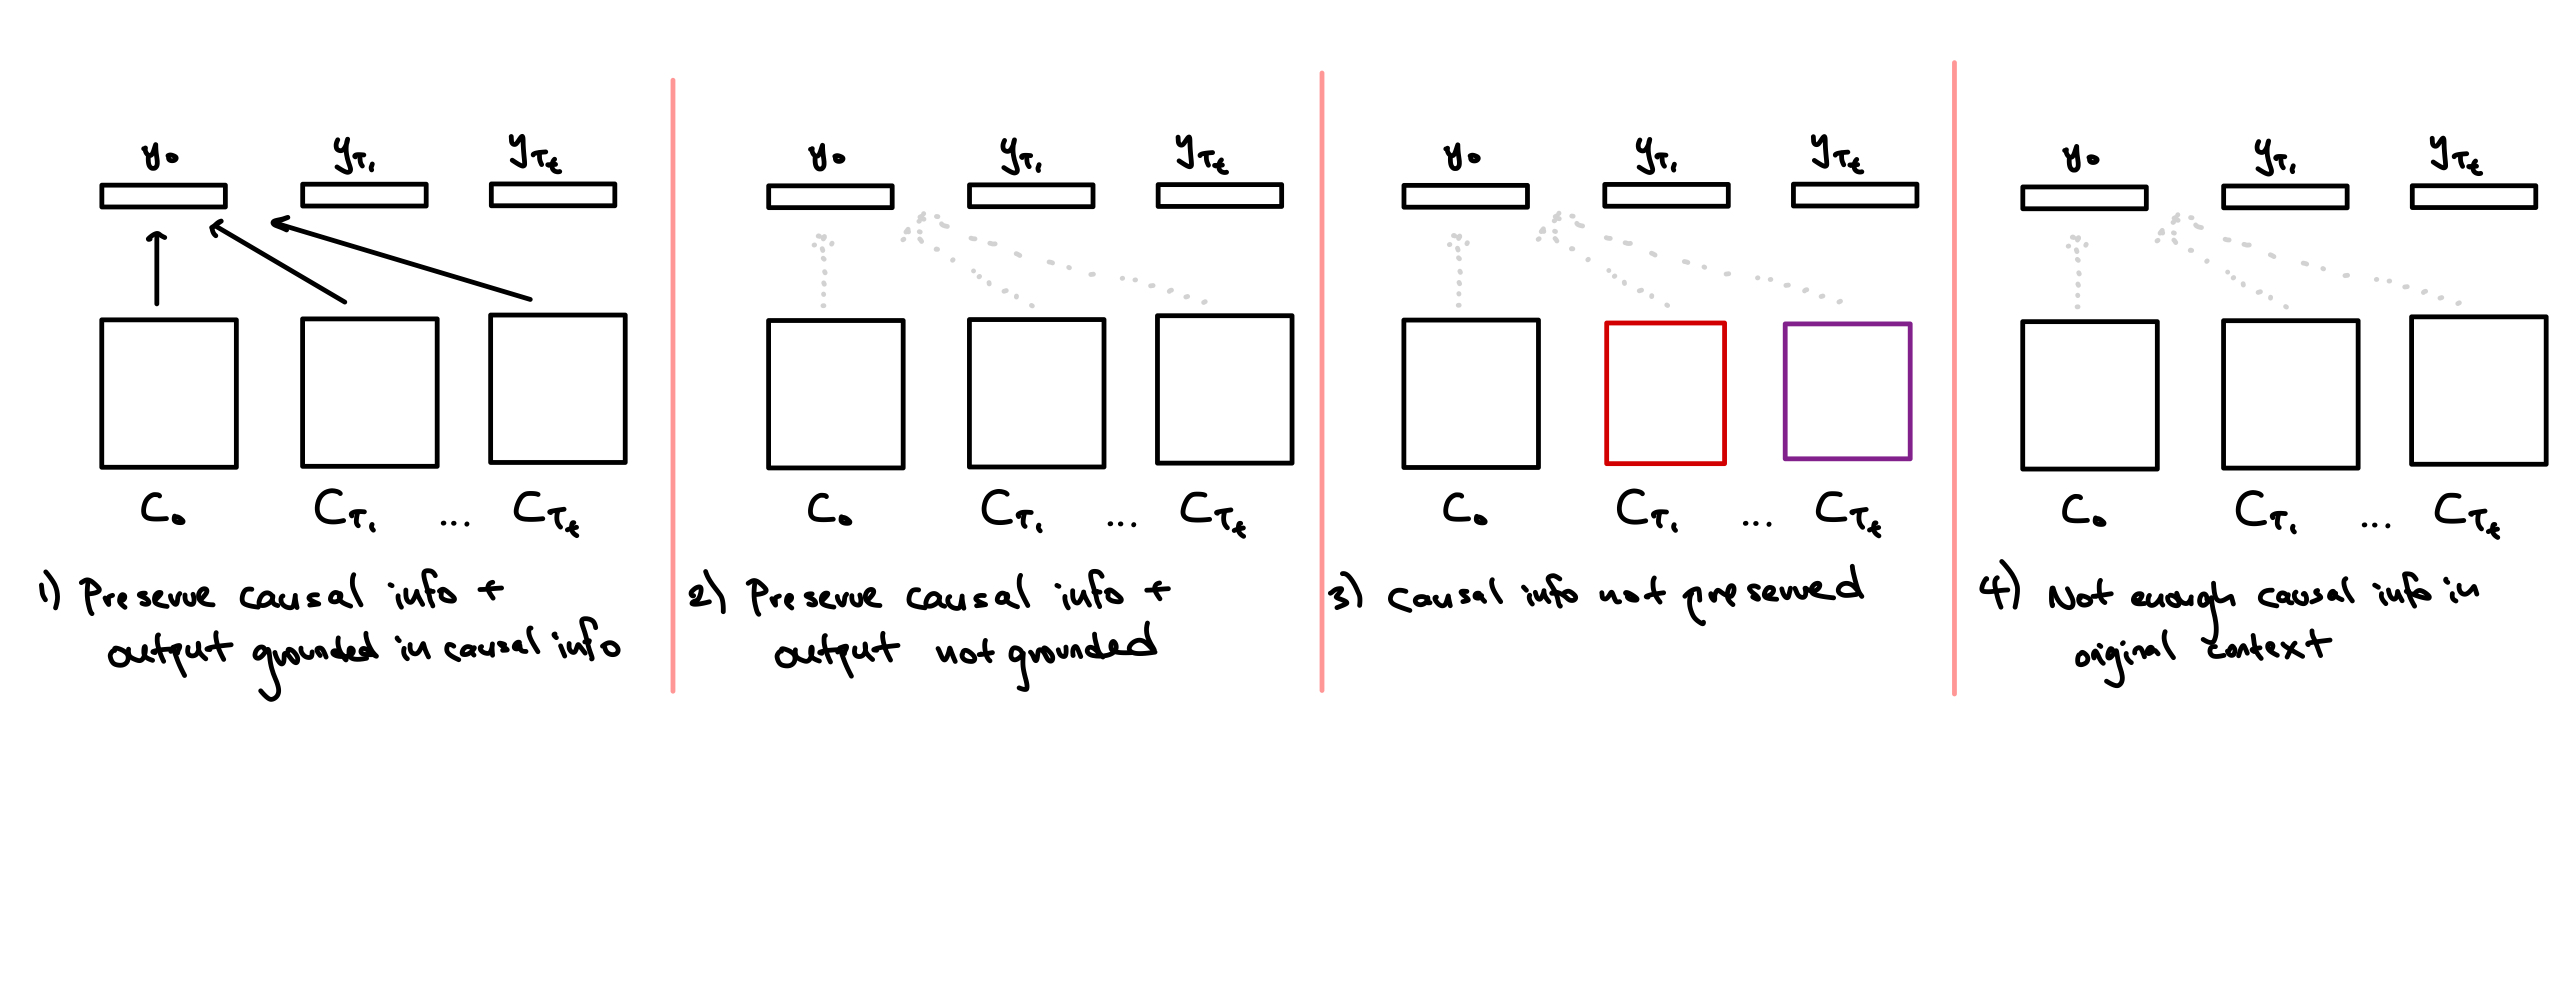 y₀ y_τ₁ y_τₜ
C₀ C_τ₁ ... C_τₜ
1) Preserve causal info +
output grounded in causal info
y₀ y_τ₁ y_τₜ
C₀ C_τ₁ ... C_τₜ
2) Preserve causal info +
output not grounded
y₀ y_τ₁ y_τₜ
C₀ C_τ₁ ... C_τₜ
3) Causal info not preserved
y₀ y_τ₁ y_τₜ
C₀ C_τ₁ ... C_τₜ
4) Not enough causal info in
original context